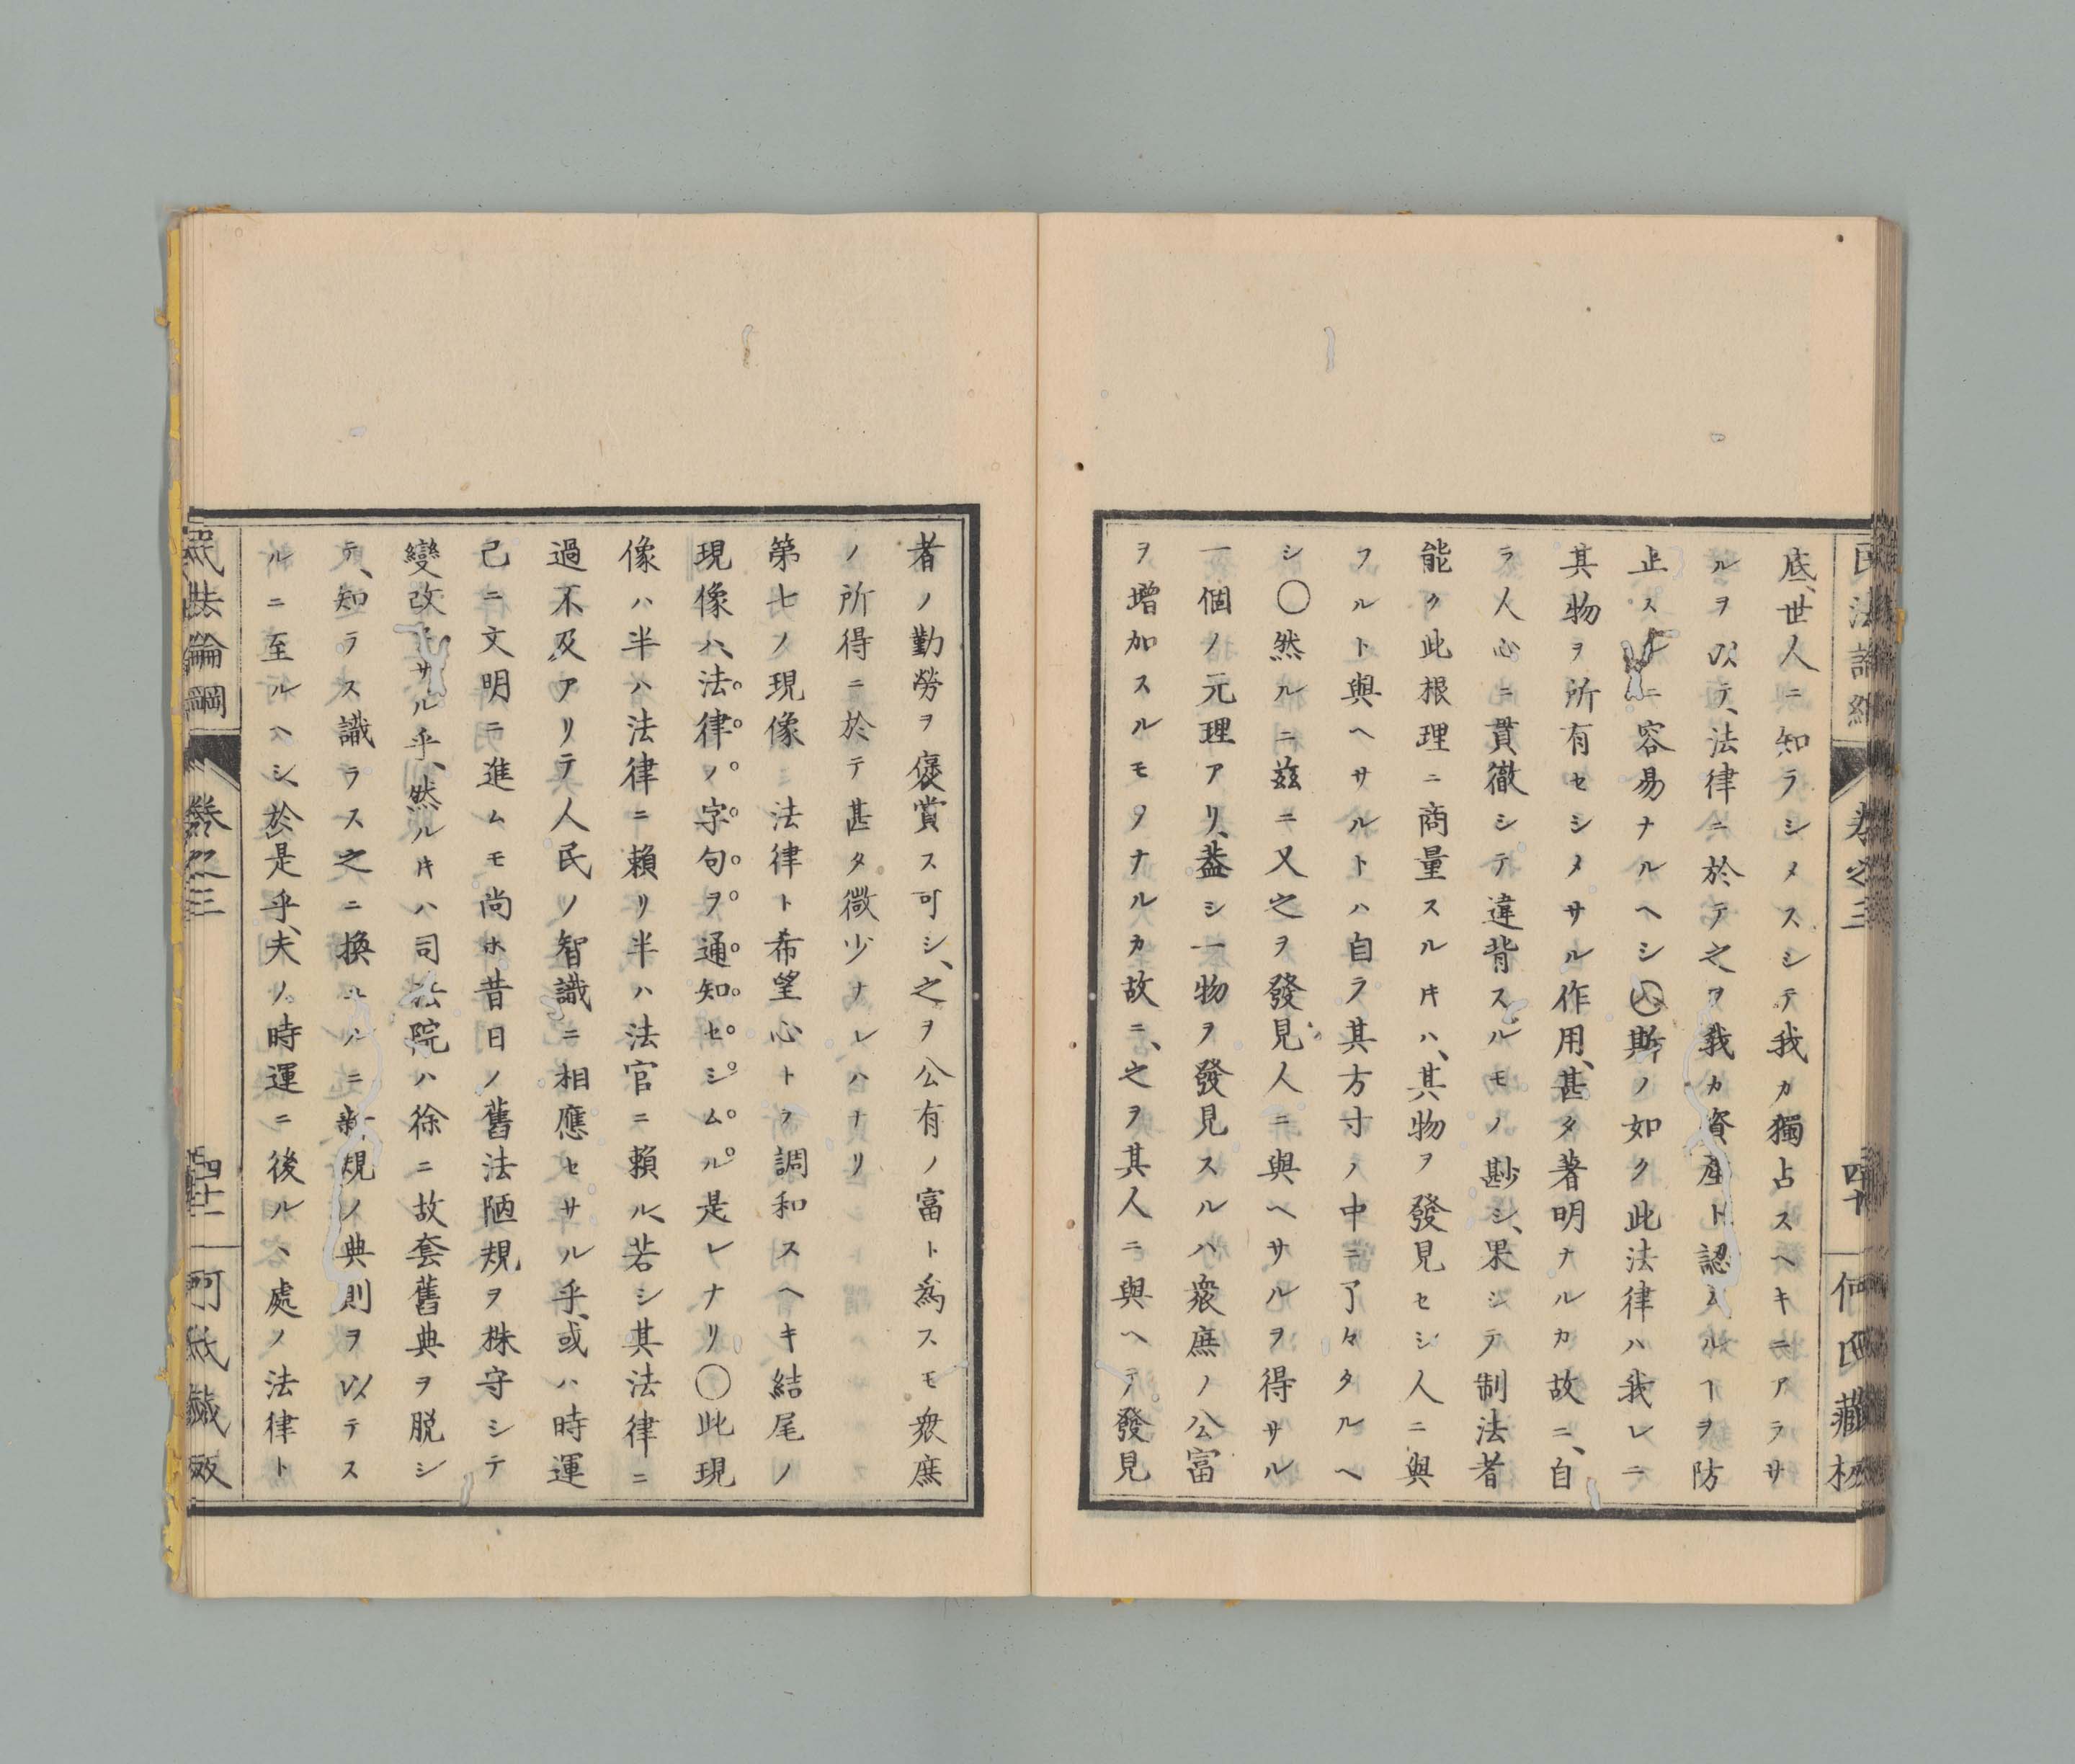 底、世人ニ知ラシメスシテ我カ獨占スヘキニアラサ
ルヲ以テ、法律ニ於テ之ヲ我カ資產ト認ムルヿヲ防
止ス ニ容易ナルヘシ〇斯ノ如ク此法律ハ我レニ
其物ヲ所有セシメサル作用、甚タ著明ナルカ故ニ、自
ラ人心ニ貫徹シテ違背スルモノ尠シ、果シテ制法者
能ク此根理ニ商量スルキハ、其物ヲ發見セシ人ニ與
フルト與ヘサルトハ自ラ其方寸ノ中ニ了々タルヘ
シ〇然ルニ茲ニ又之ヲ發見人ニ與ヘサルヲ得サル
一個ノ元理アリ、蓋シ一物ヲ發見スルハ衆庶ノ公富
ヲ增加スルモノナルカ故ニ、之ヲ其人ニ與ヘテ發見
民法論綱 卷之三 四十 何氏藏板
者ノ勤勞ヲ褒賞ス可シ、之ヲ公有ノ富ト爲スモ衆庶
ノ所得ニ於テ甚タ微少ナレハナリ
第七ノ現像ニ法律ト希望心トヲ調和スヘキ結尾ノ
現像ハ、法律ノ字句ヲ通知セシムル是レナリ〇此現
像ハ半ハ法律ニ賴リ半ハ法官ニ賴ル、若シ其法律ニ
過不及アリテ人民ノ智識ニ相應セサル乎、或ハ時運
己ニ文明ニ進ムモ尚ホ昔日ノ舊法陋規ヲ株守シテ
變改 サル乎、然ルキハ司法院ハ徐ニ故套舊典ヲ脱シ
テ、知ラス識ラス之ニ換ユルニ新規ノ典則ヲ以テス
ルニ至ルヘシ、於是乎、夫ノ時運ニ後ルヽ處ノ法律ト
民法論綱 卷之三 四十一 何氏藏板